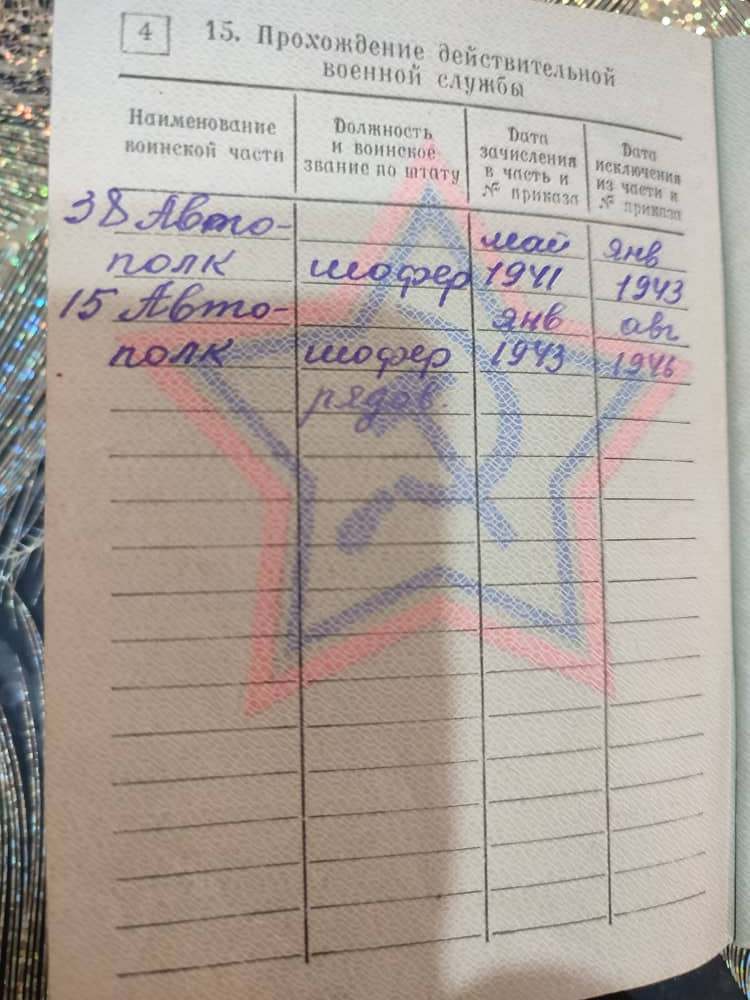 4
15. Прохождение действительной
военной службы
Наименование
воинской части
Должность
и воинское
звание по штату
Дата
зачисления
в часть и
№ приказа
Дата
исключения
из части и
№ приказа
38 Авто-
май
янв
полк
шофер
1941
1943
15 Авто-
янв
авг
полк
шофер
1943
1946
рядов.